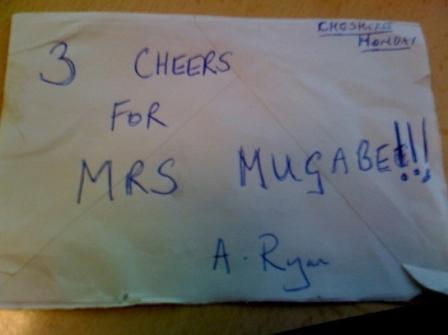 CHESHIRE
MONDAY
3 CHEERS
FOR
MRS MUGABE!!!
A. Ryan